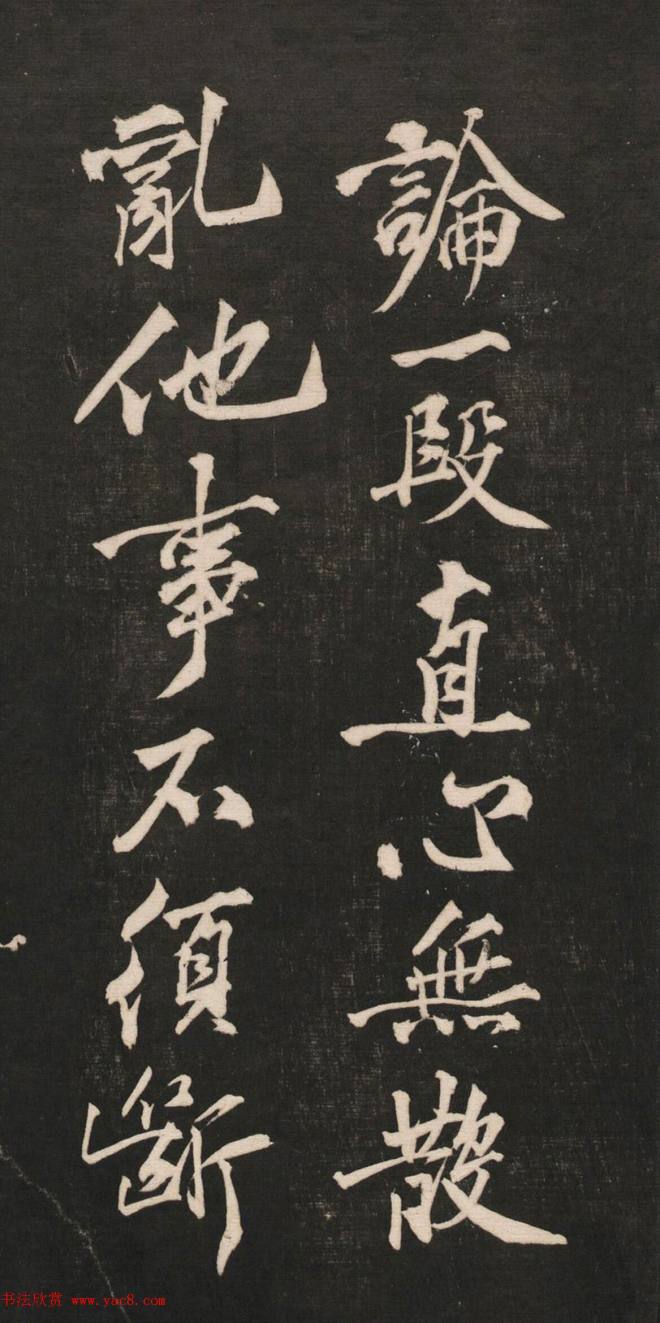 論一段直心無散
亂他事不須斷
书法欣赏 www.yac8.com